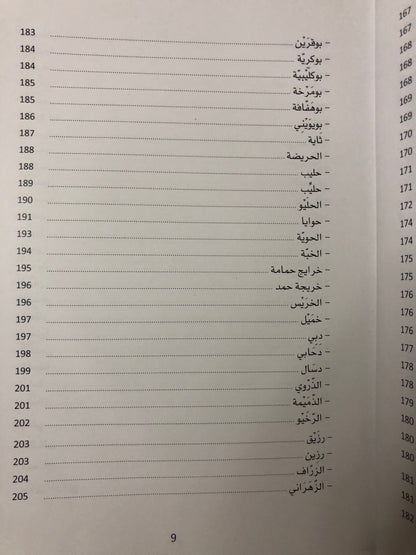 – بوقرَيْن 183
– بوكريّة 184
– بوكلَيْبيّة 184
– بومَرْخة 185
– بوهَفّافة 185
– بويويْني 186
– ثاية 187
– الحريضة 188
– حليب 188
– حليّب 189
– الحليْو 190
– حوايا 191
– الحويّة 193
– الخبّة 194
– خرايج حمامة 195
– خريجة حمد 196
– الخرَيْس 196
– خمَيْل 197
– دبي 197
– دَحّابي 198
– دسَال 199
– الذّرْوي 201
– الذّميْمة 201
– الرّخيْو 202
– رزَيْق 203
– رزين 203
– الرّزّاف 204
– الزّهْرَاني 205
9
167
167
168
168
168
169
169
170
170
171
171
172
174
174
175
175
176
176
176
177
178
178
179
180
180
180
181
181
182